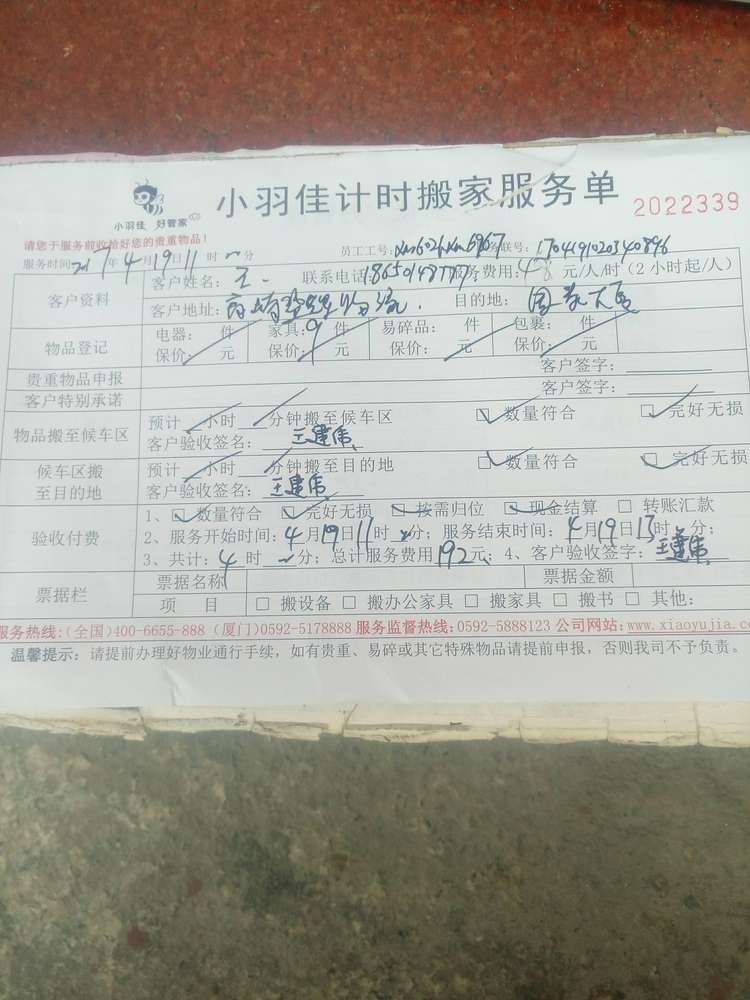 小羽佳计时搬家服务单
小羽佳 好管家
2022339
请您于服务前收拾好您的贵重物品！
员工工号: 务联号:
服务时间: 年4月19日11时 分
客户资料
客户姓名: 王 联系电话 服务费用:48元/人/时(2小时起/人)
客户地址: 物流 目的地:
物品登记
电器: 件 家具:9件 易碎品: 件 包裹: 件
保价: 元 保价: 元 保价: 元 保价: 元
贵重物品申报 客户签字:
客户特别承诺 客户签字:
物品搬至候车区
预计 小时 分钟搬至候车区 ☑数量符合 ☑完好无损
客户验收签名: 王建伟
候车区搬至目的地
预计 小时 分钟搬至目的地 ☑数量符合 ☑完好无损
客户验收签名: 王建伟
验收付费
1、☑数量符合 ☑完好无损 ☑按需归位 ☑现金结算 □转账汇款
2、服务开始时间:4月19日11时 分; 服务结束时间:4月19日15时 分;
3、共计:4时 分; 总计服务费用192元; 4、客户验收签字: 王建伟
票据栏
票据名称 票据金额
项 目 □搬设备 □搬办公家具 □搬家具 □搬书 □其他:
服务热线:(全国)400-6655-888 (厦门)0592-5178888 服务监督热线:0592-5888123 公司网站:www.xiaoyujia.co
温馨提示: 请提前办理好物业通行手续，如有贵重、易碎或其它特殊物品请提前申报，否则我司不予负责。